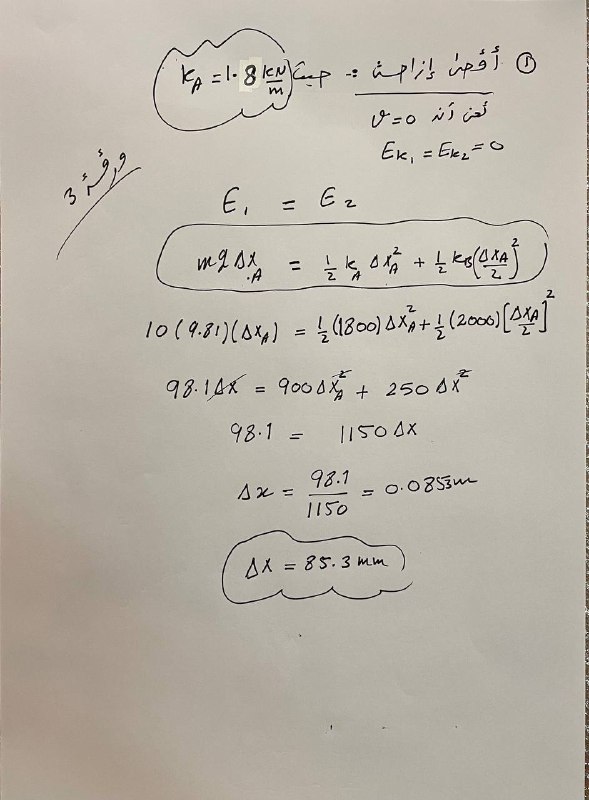 ① أقصى إزاحة :- حيث k_A = 1.8 kN/m
تعني أن v=0
E_K₁ = E_K₂ = 0
ورقة 3
E₁ = E₂
mg Δx_A = ½ k_A Δx_A² + ½ k_B (Δx_A/2)²
10 (9.81)(Δx_A) = ½ (1800) Δx_A² + ½ (2000) [Δx_A/2]²
98.1 Δx = 900 Δx_A² + 250 Δx²
98.1 = 1150 Δx
Δx = 98.1/1150 = 0.0853 m
Δx = 85.3 mm